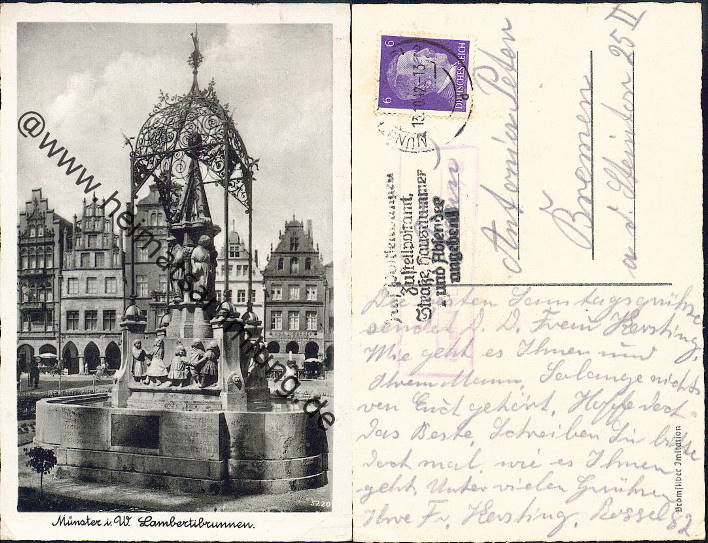 @www.heimatsammlung.de
3220
Münster i. W. Lambertibrunnen.
6
6
DEUTSCHES REICH
MÜN
13.10.42-13
Bei Postsendungen
Zustellpostamt,
Straße, Hausnummer
und Absender
angeben!
Antonia Peter
Bremen
a. d. Steintor 25 II
Die besten Sonntagsgrüße
sendet Frau Kersting.
Wie geht es Ihnen und
Ihrem Mann, Solange nichts
von Euch gehört, Hoffe doch
das Beste, Schreiben Sie bitte
doch mal, wie es Ihnen
geht. Unter vielen Grüßen
Ihre Fr. Kersting, 82
Bromsilber Imitation